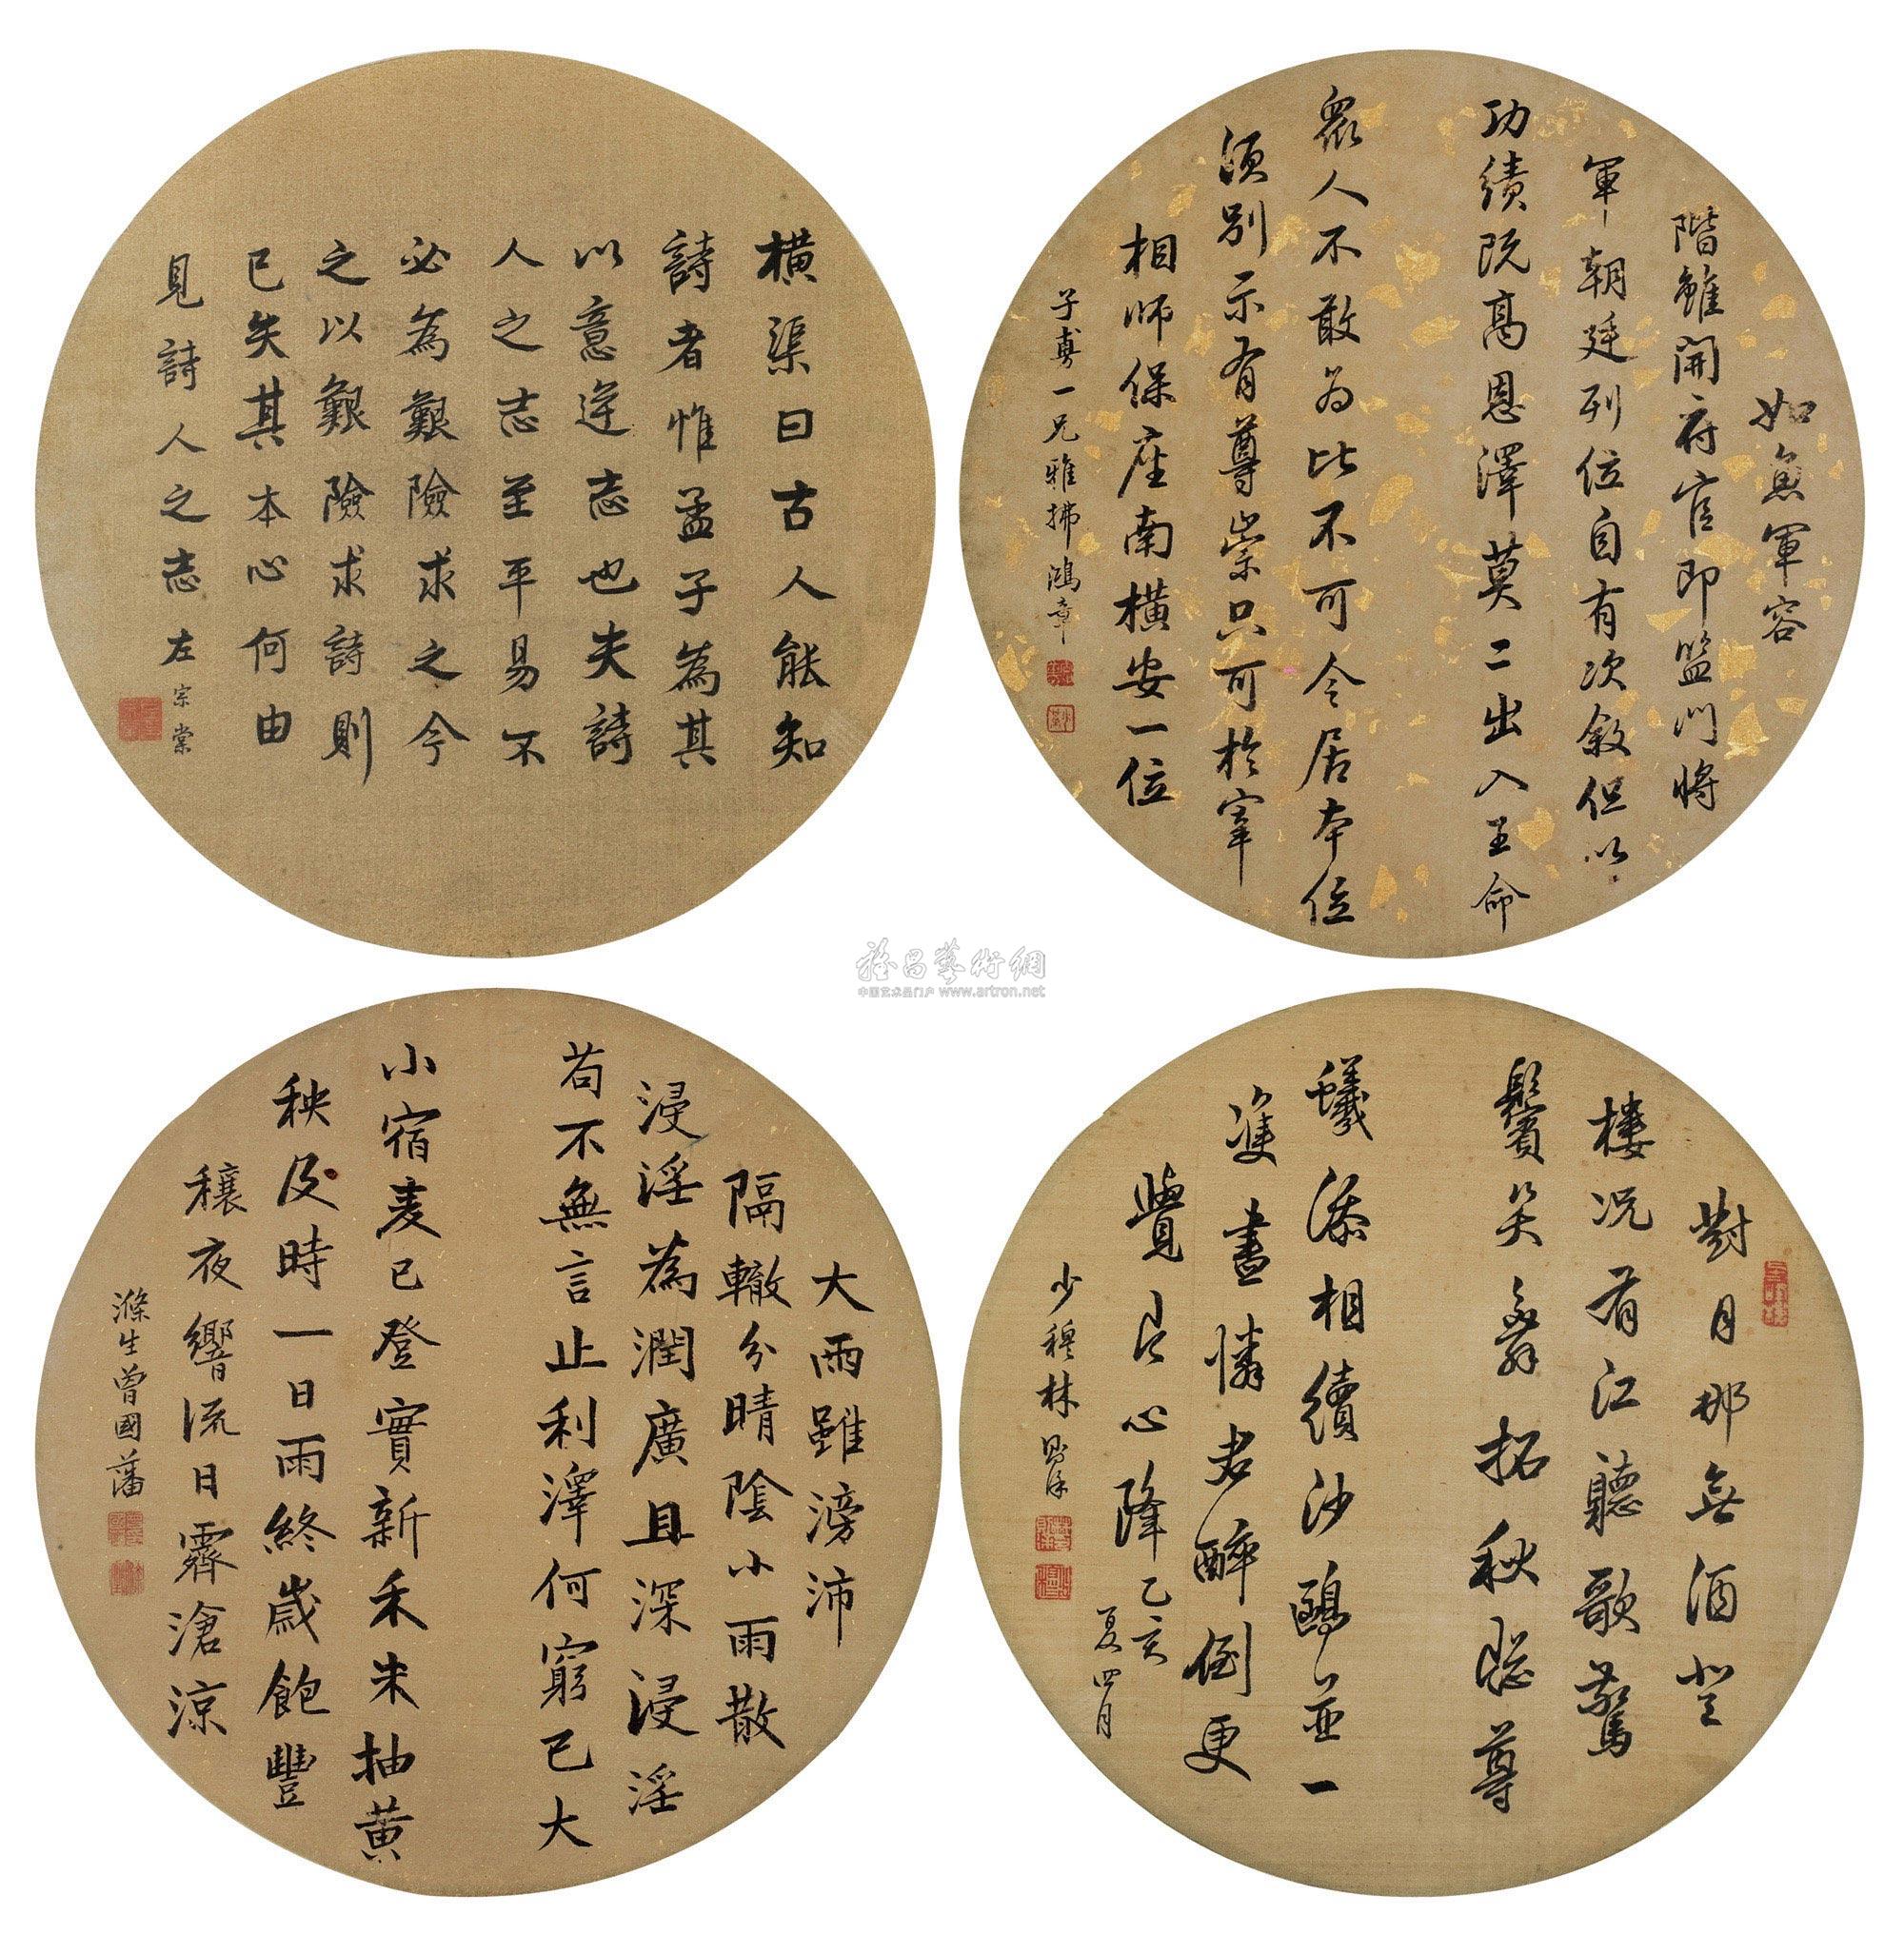 橫渠曰古人能知
詩者惟孟子為其
以意逆志也夫詩
人之志至平易不
必為艱險求之今
之以艱險求詩則
已失其本心何由
見詩人之志 左宗棠
如魚軍容
階雖開府官即監門將
軍朝廷列位自有次敘但以
功績既高恩澤莫二出入王命
眾人不敢為比不可令居本位
須別示有尊崇只可於宰
相師保座南橫安一位
子專一兄雅拂 鴻章
雅昌藝術網
中国艺术品门户 www.artron.net
大雨雖滂沛
隔轍分晴陰小雨散
浸淫為潤廣且深浸淫
苟不無言止利澤何窮已大
小宿麦已登實新禾未抽黄
秧及時一日雨終歲飽豐
穰夜響流日霽滄涼
滌生曾國藩
對月那無酒登
樓況有江聽歌驚
鬢笑舞拓秋聰尊
蟻添相續沙鷗並一
雙盡憐君醉倒更
覺片心降 乙亥
夏四月
少穆林則徐